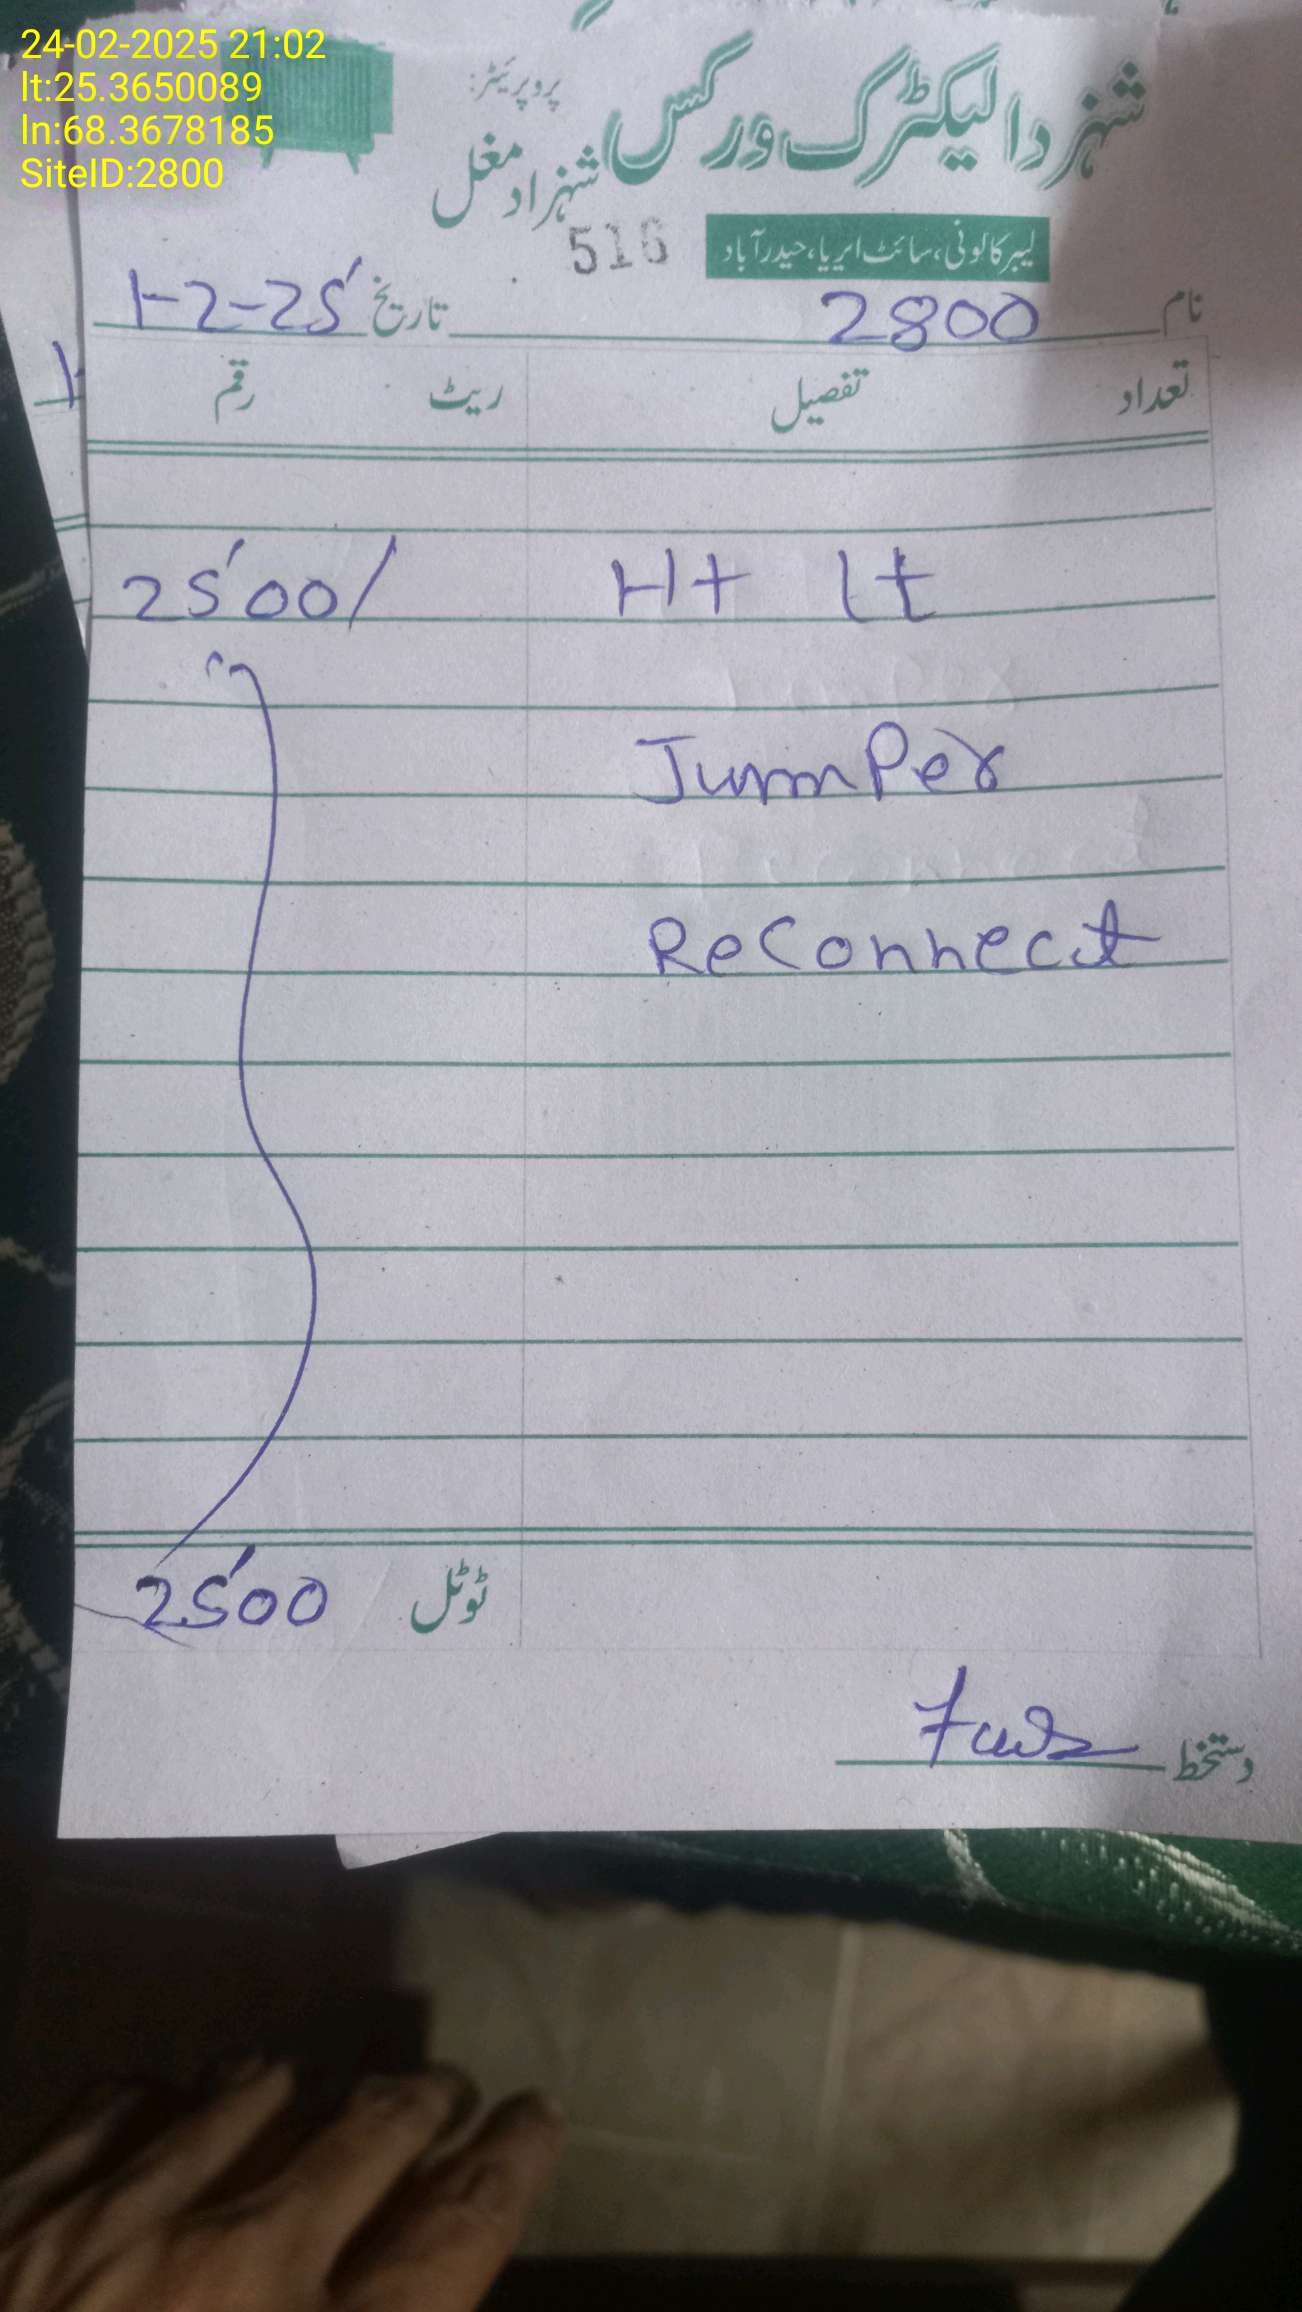 24-02-2025 21:02
lt:25.3650089
ln:68.3678185
SiteID:2800
شہزدا لیکٹرک ورکس
پروپرئیٹر:
شہزاد مغل
516
لیبر کالونی، سائٹ ایریا، حیدرآباد
نام 2800 تاریخ 1-2-25
تعداد تفصیل ریٹ رقم
Ht Lt 2500/
JumPer
ReConnect
ٹوٹل 2500
دستخط